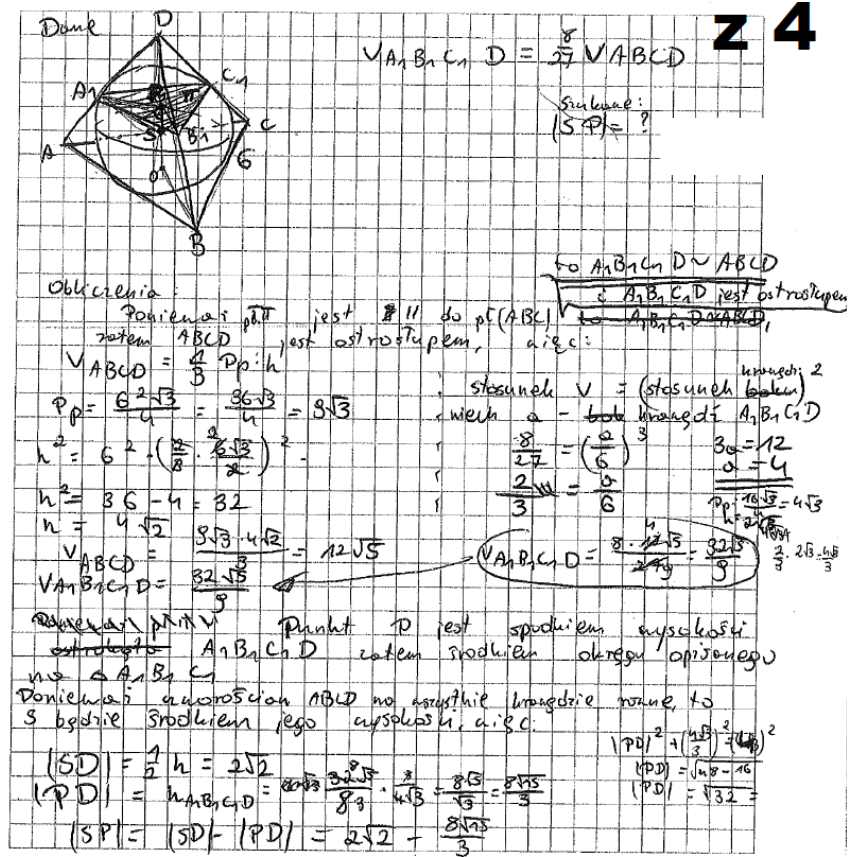 z 4
Dane
D
A₁
C₁
S
B₁
A
C
6
O
B
V A₁B₁C₁ D = 8/27 V ABCD
Szukane:
|SP| = ?
to A₁B₁C₁D ~ ABCD
i A₁B₁C₁D jest ostrosłupem
Obliczenia:
Ponieważ pł. π jest || do pł(ABC)
zatem ABCD jest ostrosłupem, więc:
V ABCD = 1/3 Pp · h
Pp = 6²√3/4 = 36√3/4 = 9√3
h² = 6² - (2/3 · 6√3/2)²
h² = 36 - 4 = 32
h = 4√2
V ABCD = 9√3 · 4√2 / 3 = 12√5
V A₁B₁C₁D = 32√5/9
stosunek V = (stosunek krawędzi)²
niech a - krawędź A₁B₁C₁D
8/27 = (a/6)³
2/3 = a/6
3a = 12
a = 4
Pp = 16√3/4 = 4√3
V A₁B₁C₁D = 8 · 12√5 / 27 9 = 32√5/9
Punkt P jest spodkiem wysokości
A₁B₁C₁D zatem środkiem okręgu opisanego
na △ A₁B₁C₁
Ponieważ czworościan ABCD ma wszystkie krawędzie równe, to
S będzie środkiem jego wysokości, więc:
|SD| = 1/2 h = 2√2
|PD| = h A₁B₁C₁D = 32√5/9 · 3/4√3 = 8√5/√3 = 8√15/3
|SP| = |SD| - |PD| = 2√2 - 8√15/3
|PD| = √48 - 16
|PD| = √32 =